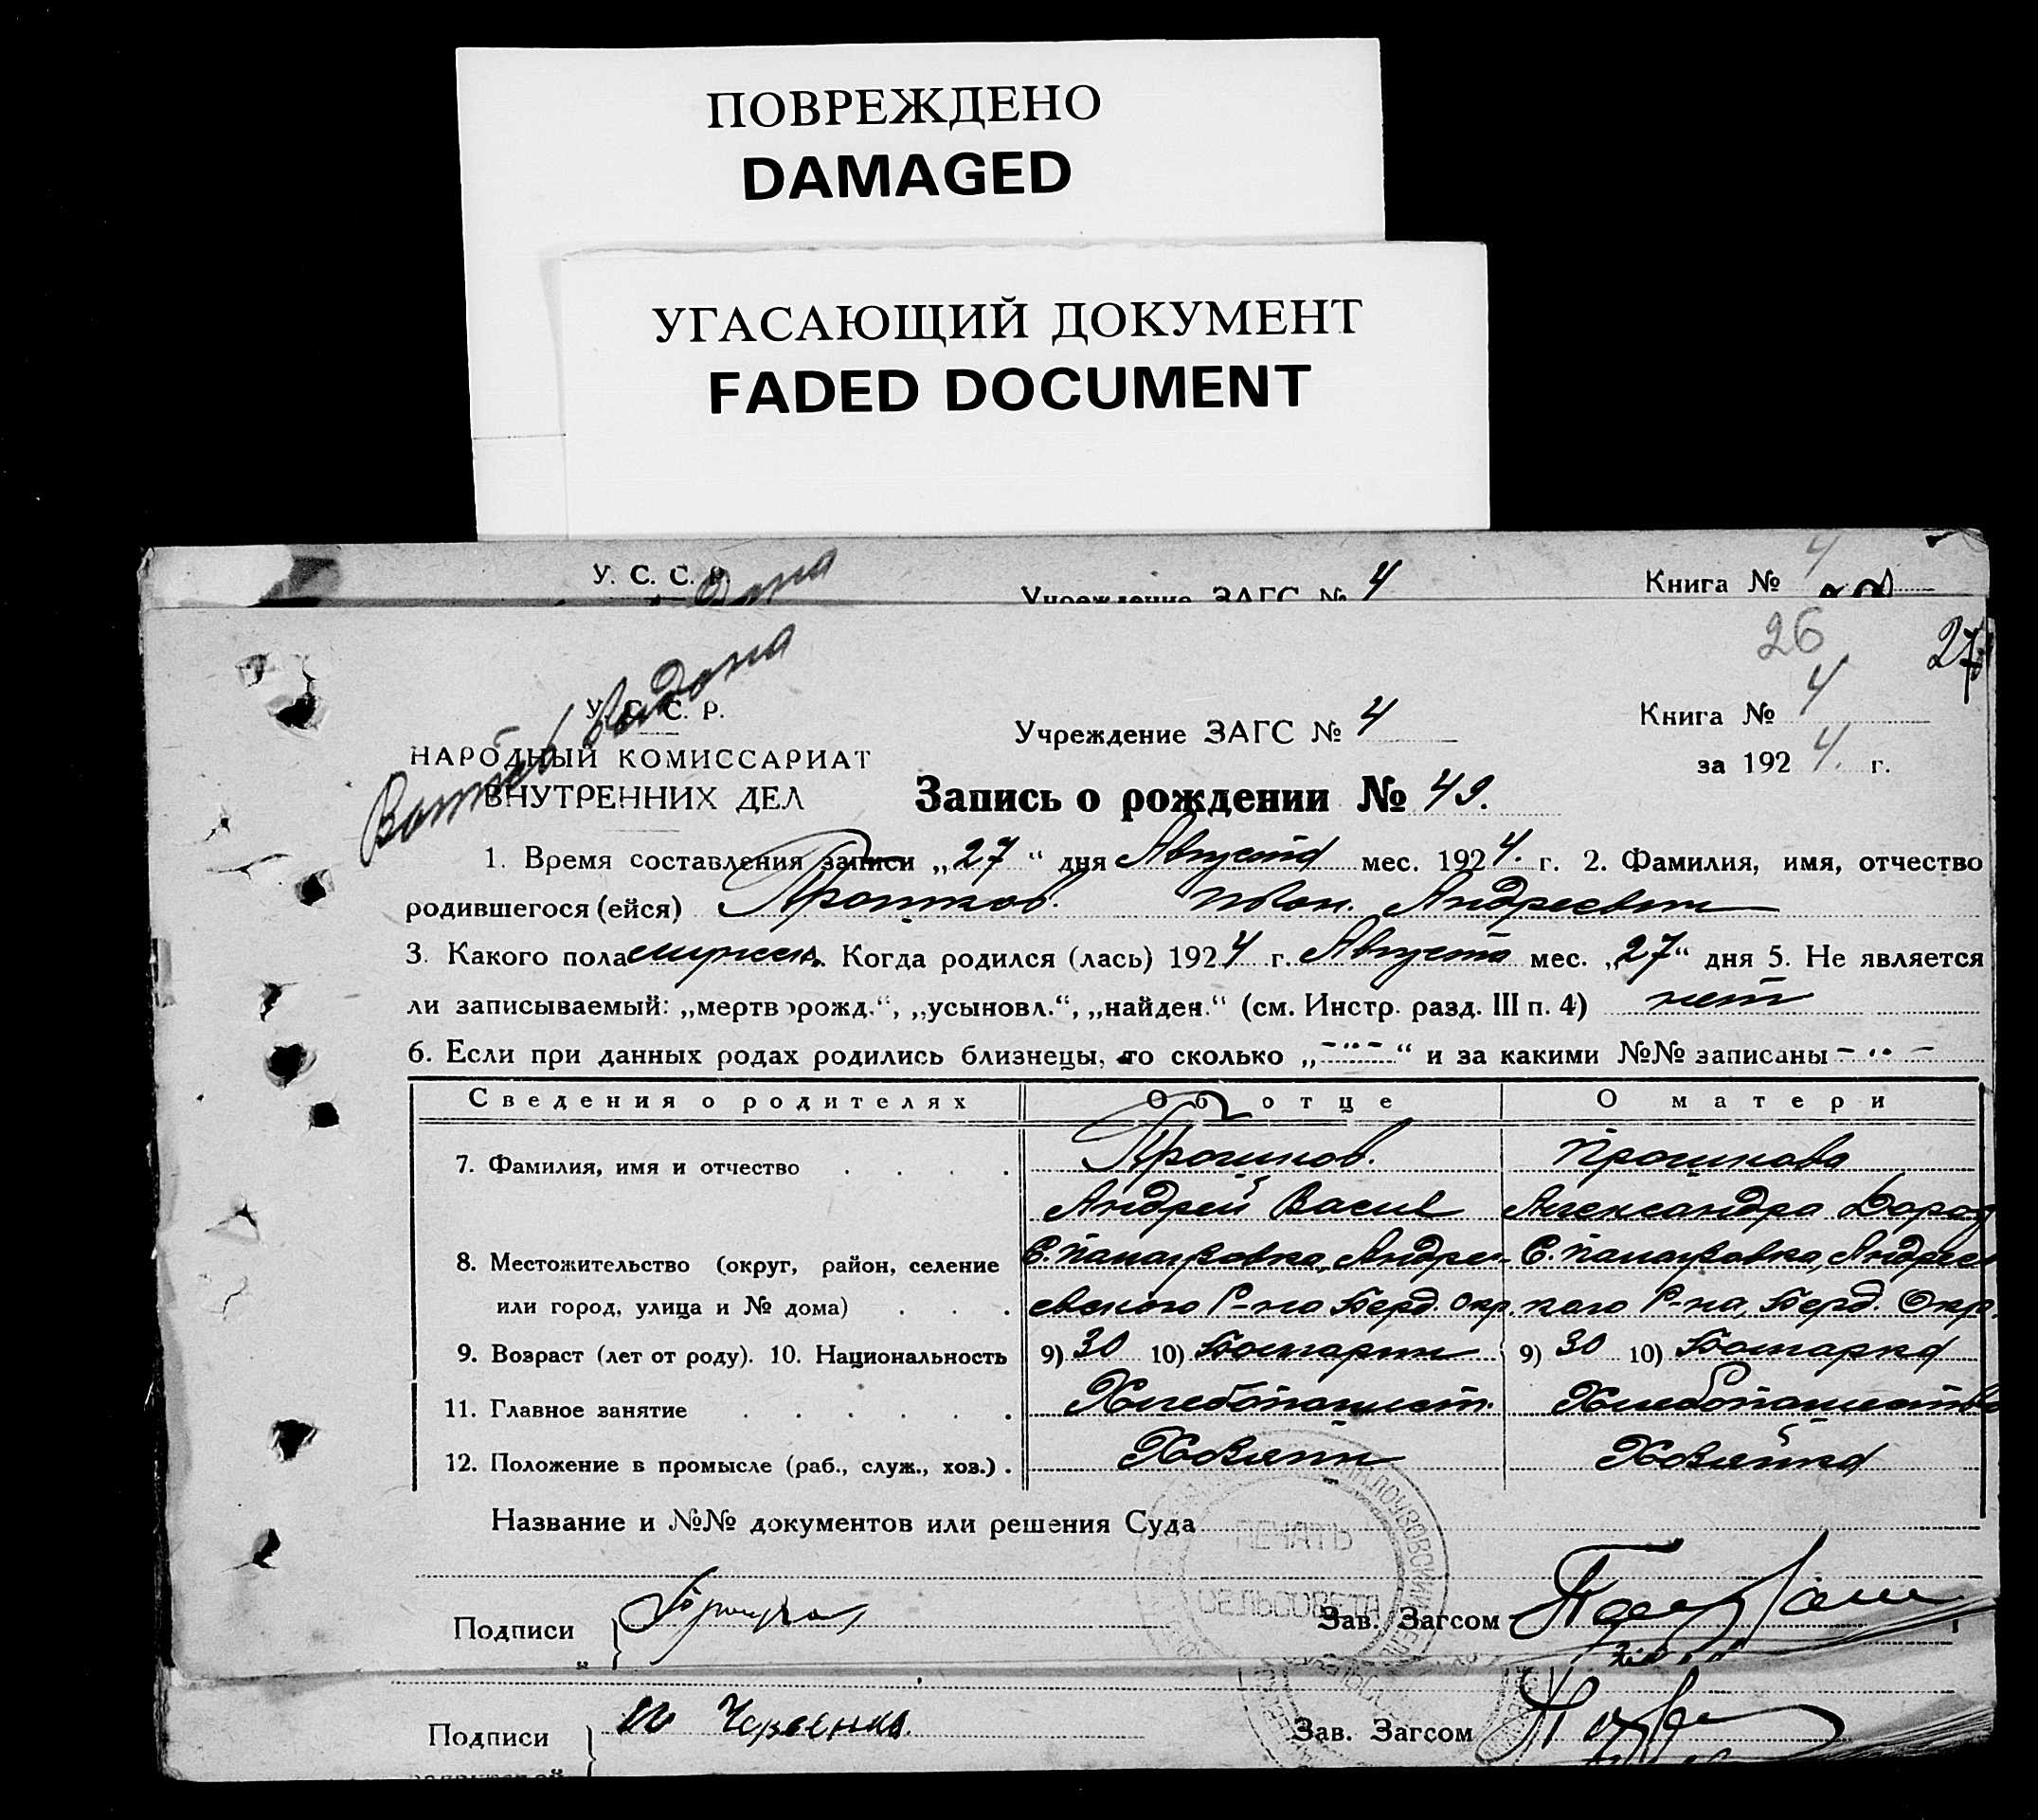 ПОВРЕЖДЕНО
DAMAGED
УГАСАЮЩИЙ ДОКУМЕНТ
FADED DOCUMENT
У. С. С. Р.
Учреждение ЗАГС № 4
Книга № 4
26 27
У. С. С. Р.
Учреждение ЗАГС № 4
Книга № 4
НАРОДНЫЙ КОМИССАРИАТ
ВНУТРЕННИХ ДЕЛ
за 1924 г.
Запись о рождении № 49.
1. Время составления записи „27“ дня Августа мес. 1924. г. 2. Фамилия, имя, отчество
родившегося (ейся) Андреевич
3. Какого пола Когда родился (лась) 1924 г. Августа мес. „27“ дня 5. Не является
ли записываемый: „мертворожд.“, „усыновл.“, „найден.“ (см. Инстр. разд. III п. 4) нет
6. Если при данных родах родились близнецы, то сколько „-„-“ и за какими №№ записаны - „ -
Сведения о родителях Об отце О матери
7. Фамилия, имя и отчество . . . . Прошков. Прошкова
Андрей Васил Александра Дород
8. Местожительство (округ, район, селение С. Андре- С. Андреев
или город, улица и № дома) . . . евского Р-на Берд. Окр. кого Р-на, Берд. Окр.
9. Возраст (лет от роду). 10. Национальность 9) 30 10) Болгарин 9) 30 10) Болгарка
11. Главное занятие . . . . . . Хлебопашест. Хлебопашество
12. Положение в промысле (раб., служ., хоз.) . Хозяин Хозяйка
Название и №№ документов или решения Суда
ПЕЧАТЬ
СЕЛЬСОВЕТА
Подписи
Зав. Загсом
Подписи
Зав. Загсом